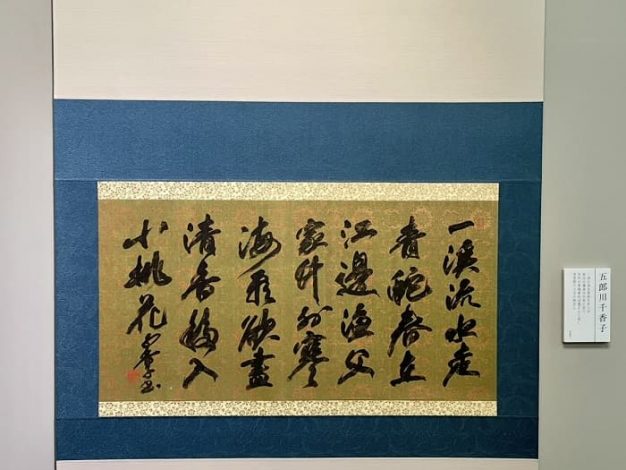 一溪流水走
青蛇春在
江邊漁父
家竹外寒
梅看欲盡
清香移入
小桃花 書
五郎川千香子